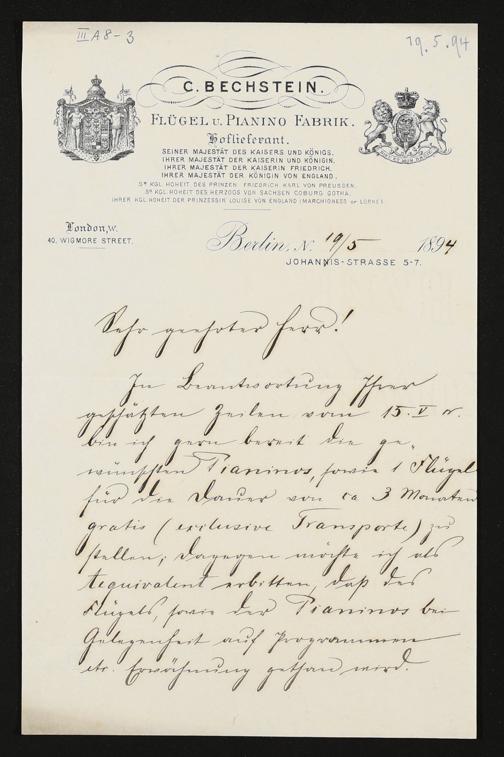 III A8-3
19.5.94
C. BECHSTEIN.
FLÜGEL U. PIANINO FABRIK.
Hoflieferant.
SEINER MAJESTÄT DES KAISERS UND KÖNIGS.
IHRER MAJESTÄT DER KAISERIN UND KÖNIGIN.
IHRER MAJESTÄT DER KAISERIN FRIEDRICH.
IHRER MAJESTÄT DER KÖNIGIN VON ENGLAND.
SR KGL. HOHEIT DES PRINZEN FRIEDRICH KARL VON PREUSSEN.
SR KGL. HOHEIT DES HERZOGS VON SACHSEN COBURG GOTHA.
IHRER KGL. HOHEIT DER PRINZESSIN LOUISE VON ENGLAND (MARCHIONESS OF LORNE).
London, W.
40, WIGMORE STREET.
Berlin, N. 19/5 1894
JOHANNIS-STRASSE 5-7.
Sehr geehrter Herr!
In Beantwortung Ihrer
geschätzten Zeilen vom 15. V
bin ich gern bereit die ge-
wünschten Pianinos, sowie 1 Flügel
für die Dauer von ca 3 Monaten
gratis (exclusive Transporte) zu
stellen; dagegen möchte ich als
Aequivalent erbitten, daß des
Flügels, sowie der Pianinos bei
Gelegenheit auf Programmen
etc. Erwähnung gethan wird.